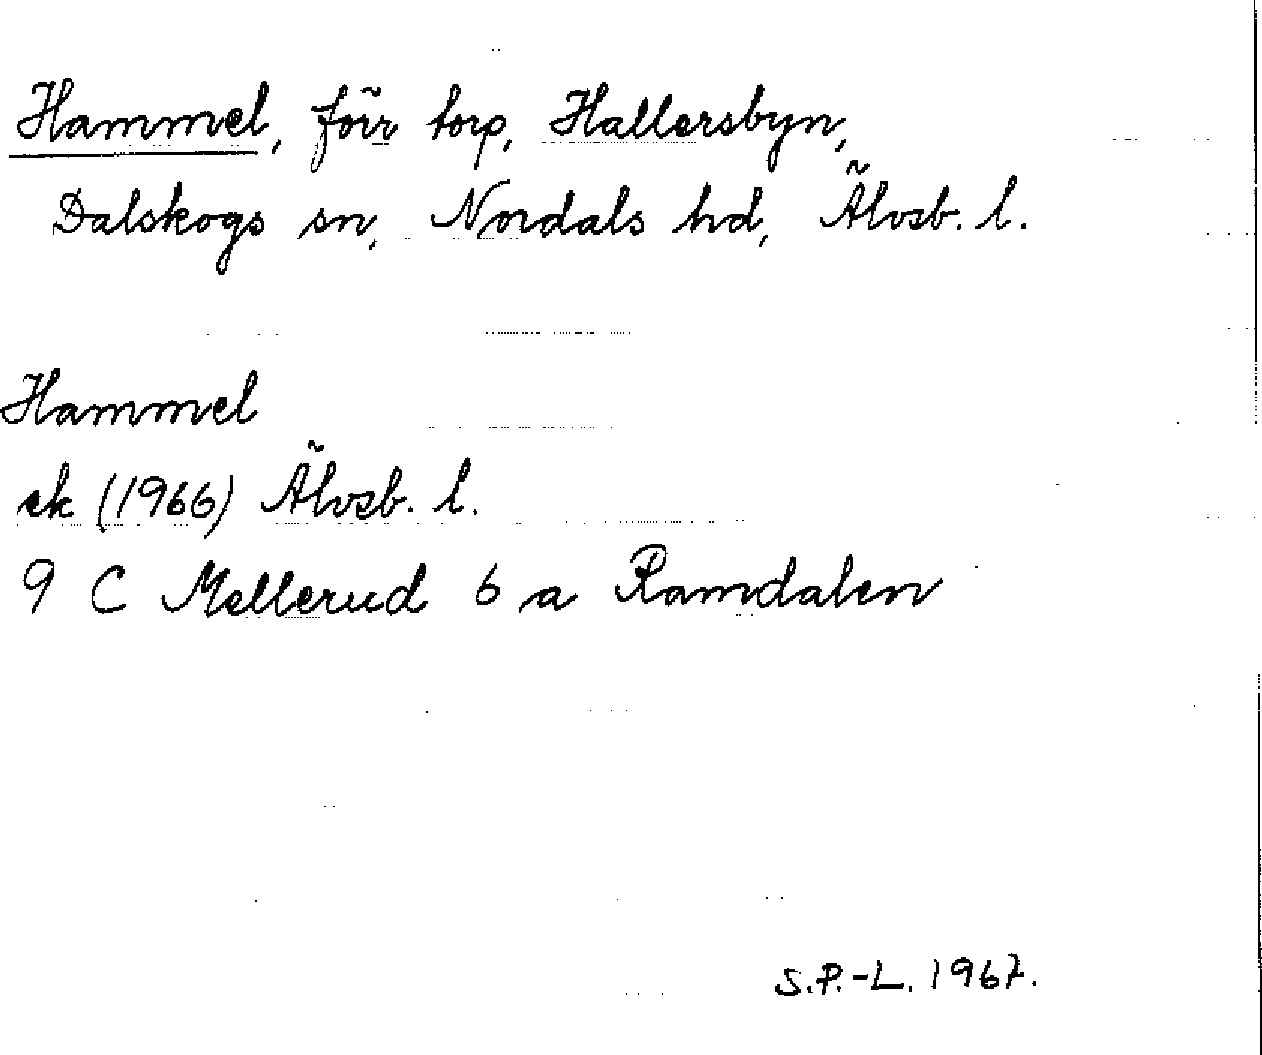 Hammel, förr torp, Hallersbyn,
Dalskogs sn, Nordals hd, Älvsb. l.
Hammel
ek (1966) Älvsb. l.
9 C Mellerud 6 a Ramdalen
S.P.-L. 1967.